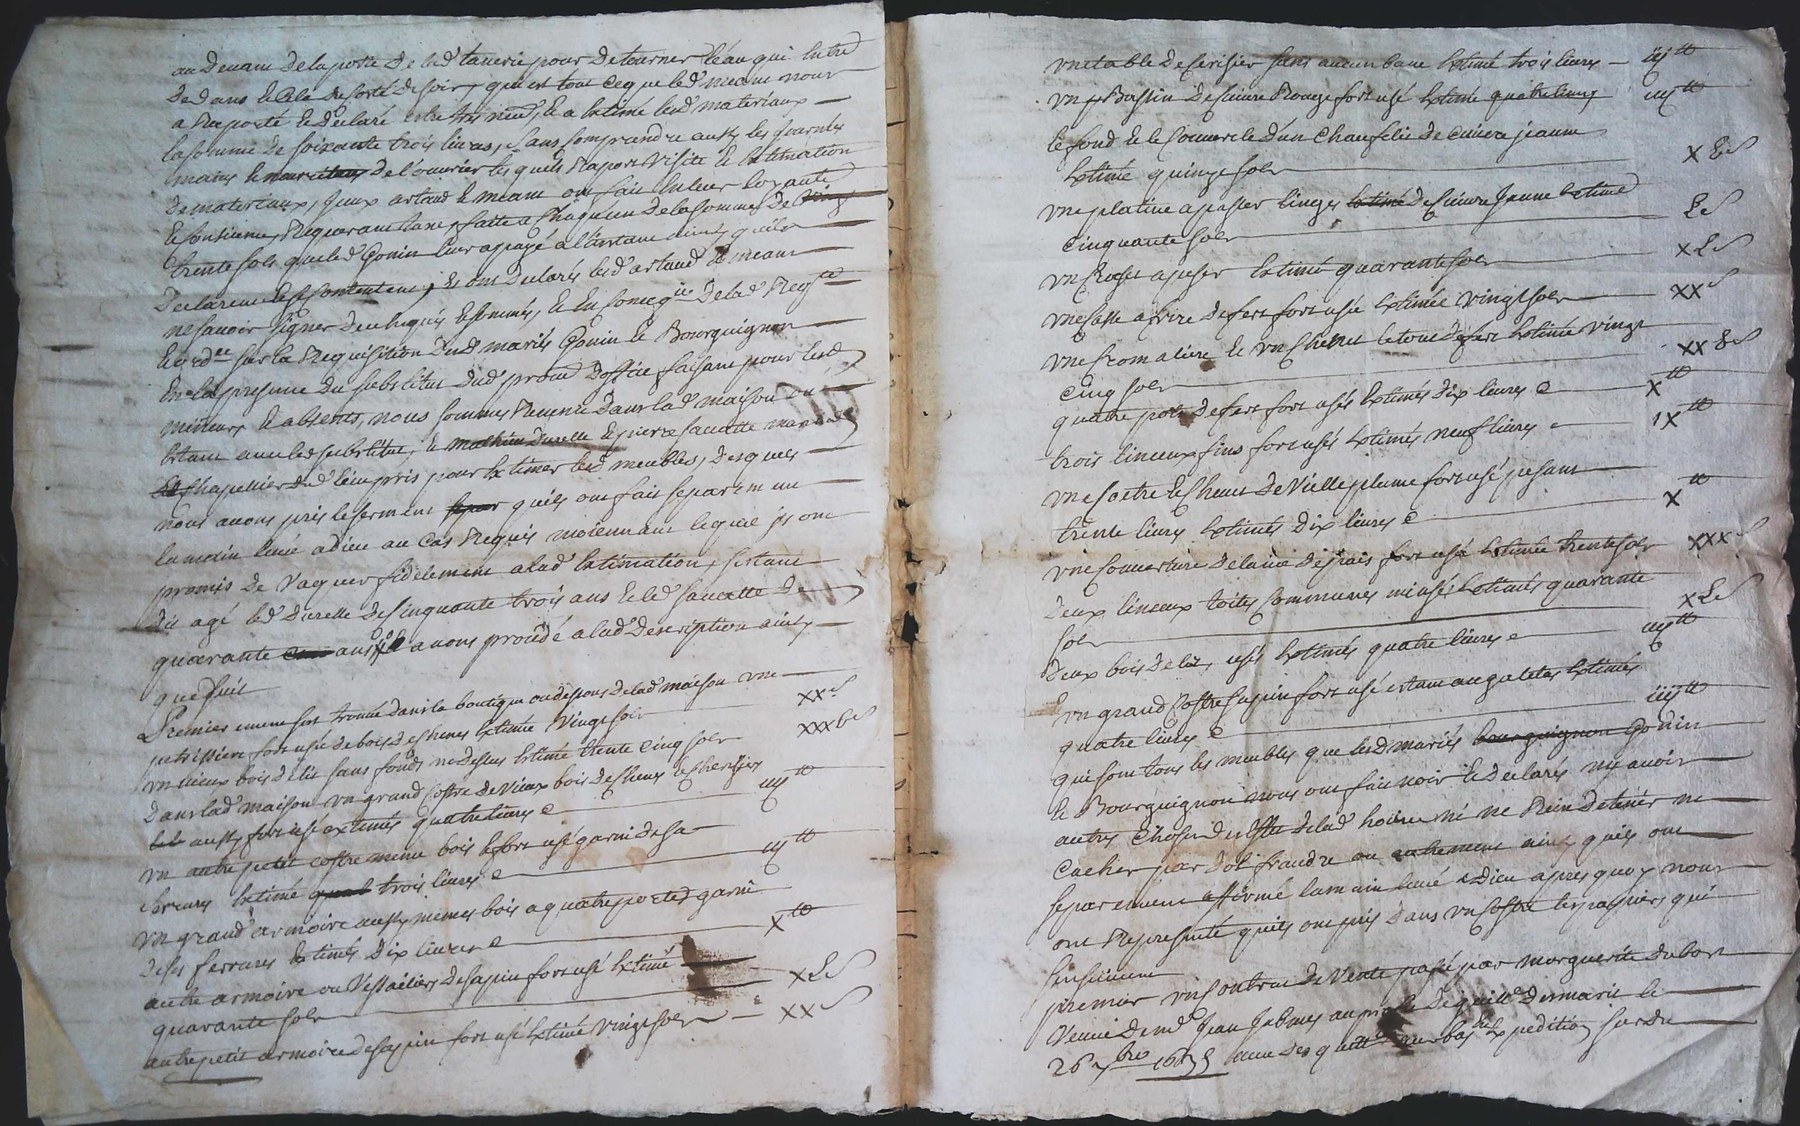 au devant de la porte de lad tanerie pour detourner l'eau qui entre
dedans qui est tout ce que led meant nous
a raporté et declaré et a extimé lesd materiaux
la somme de soixante trois livres, sans comprendre aussy les journées
de l'ouvrier lesquels raport visite et extimation
de materiaux, eux artaud et meant ont fait
et requerant taxe faitte a chaqu'un de la somme de vingt
trente sols que led Gonin leur a payé a l'instant ainsy quils
declarent et se contentent, et ont declarés lesd artaud et meant
ne savoir signer de ce enquis et sommés, et en conseq de lad
sur la requisition desd mariés Gonin et Bourguignon
en la presence du substitut dud procu d'office faisant pour lesd
mineurs et absents, nous sommes revenu dans lad maison ou
estant avec led substitut, et mathieu durelle et pierre saucette
chapellier dud lieu pris pour extimer lesd meubles, desquels
nous avons pris le serment quils ont fait separement
la main levé a dieu au cas requis moienant lequel ils ont
promis de vaquer fidelement a lad extimation, s'estant
dit agé led durelle de cinquante trois ans et led saucette de
quarante ans avons procedé a lad description ainsy
que suit
Premierement sest trouvé dans la boutique au dessous de lad maison une
petrissiere fort usée de bois de chenes extimée vingt sols xx s
un vieux bois de lit sans fonds ne dessus extimé trente cinq sols xxxv s
dans lad maison un grand coffre de vieux bois de chenes et cherisiers
aussy fort usé extimés quatre livres iiij tt
un autre petit coffre meme bois et fort usé garni de sa
serrure extimé trois livres iij tt
un grand armoire aussy memes bois a quatre portes garni
de ses ferrures extimés dix livres x tt
autre armoire ou vessaillier de sapin fort usé extimé
quarante sols xL s
autre petit armoire de sapin fort usé extimé vingt sols xx s
une table de cerisier sans aucun banc extimé trois livres iij tt
un bassin de cuivre rouge fort usé extimé quatre livres iiij tt
le fond et le couvercle d'un chaufelit de cuivre jeaune
extimé quinze sols xv s
une platine a passer linges de cuivre jeaune extimé
cinquante sols L s
un crochet a peser extimé quarante sols xL s
une casse a frire de fert fort usée extimée vingt sols xx s
une cromaliere et un chenet le tout de fert extimée vingt
cinq sols xxv s
quatre pots de fert fort usés extimés dix livres x tt
trois linceux fins fort usés extimés neuf livres ix tt
une coetre et chevet de vielle plume fort usé pesant
trente livres extimés dix livres x tt
une couverture de laine fort usée extimée trente sols xxx s
deux linceux toiles communes mi usés extimés quarante
sols xL s
deux bois de lit usés extimés quatre livres iiij tt
un grand coffre sapin fort usé estant au galetas extimés
quatre livres iiij tt
qui sont tous les meubles que lesd mariés bourguignon Gonin
et Bourguignon nous ont fait voir et declarés ny avoir
autres choses de lad hoirie ni ne rien detenir ne
cacher par dol fraude ou autrement ainsy quils ont
separement affirmé la main levé a Dieu apres quoy nous
ont representé quils ont pris dans un coffre les papiers qui
sensuivent
premier un contrat de vente passé par marguerite dubost
veuve de md Jean au profit de
26 7bre 16 avec des quitt au bas expedition